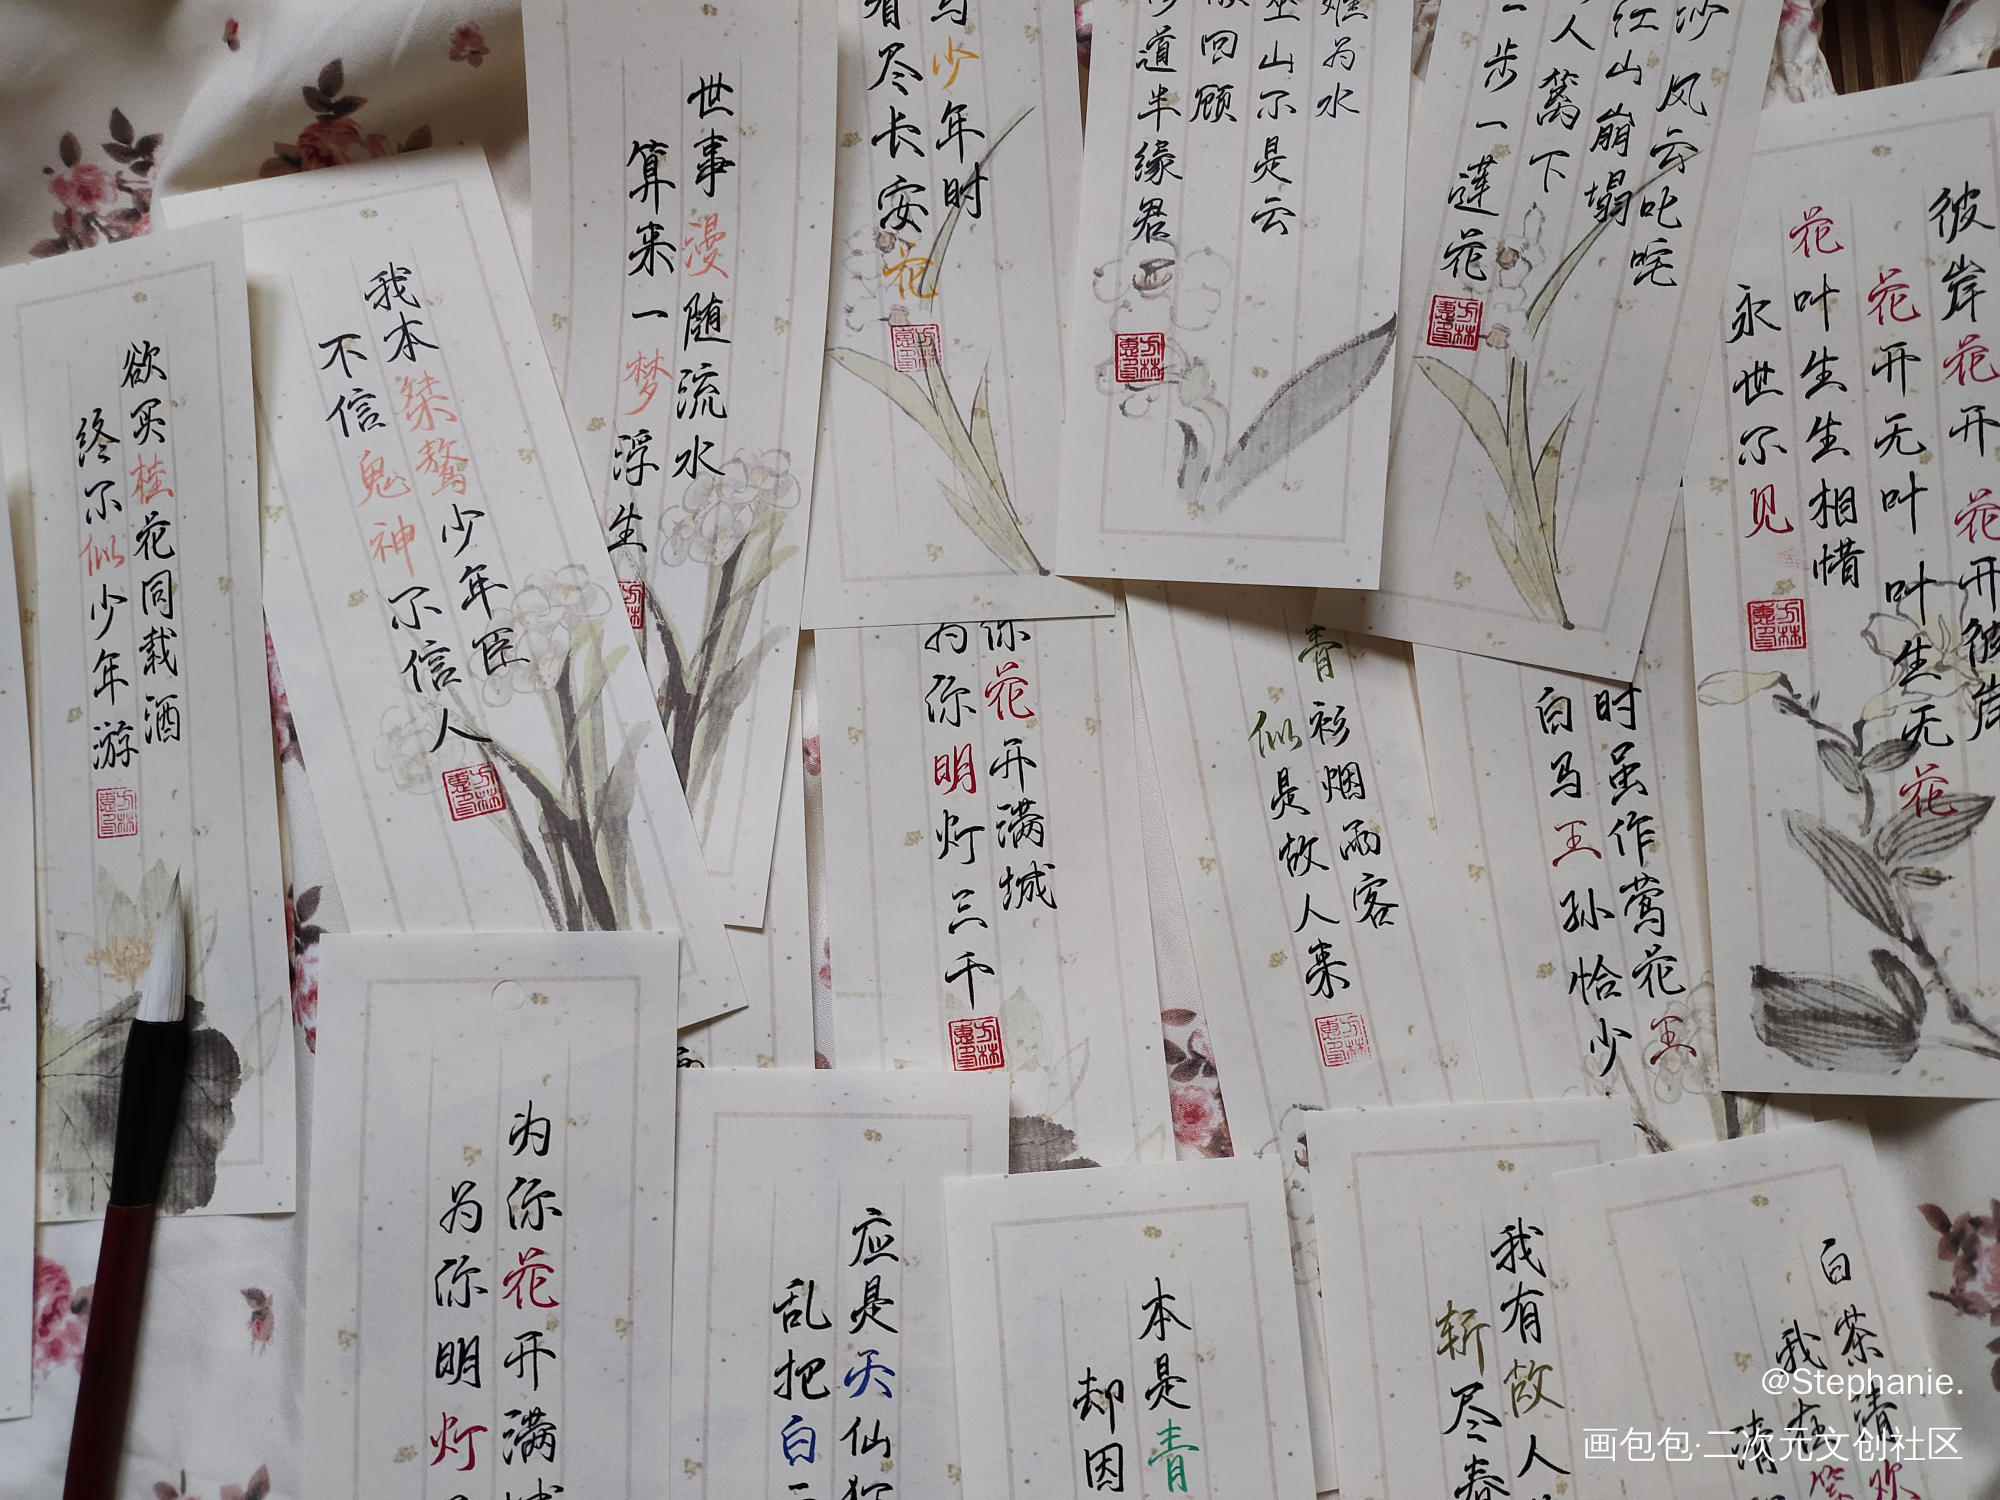 欲买桂花同载酒
终不似少年游
我本桀骜少年臣
不信鬼神不信人
世事漫随流水
算来一梦浮生
少年时
看尽长安花
难为水
巫山不是云
回顾
道半缘君
风云叱咤
江山崩塌
人篱下
一步一莲花
彼岸花开花开彼岸
花开无叶叶生无花
花叶生生相惜
永世不见
你花开满城
为你明灯三千
青衫烟雨客
似是故人来
时虽作莺花王
白马王孙恰少
为你花开满城
为你明灯
应是天仙狂
乱把白
本是青
却因
我有故人
斩尽春
白茶清欢
我在
清
@Stephanie.
画包包·二次元文创社区